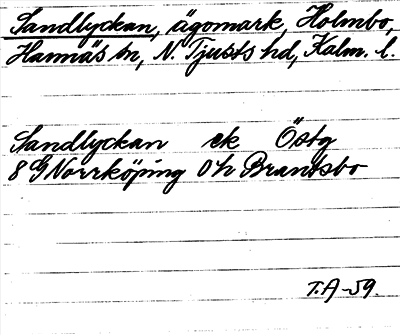 Sandlyckan, ägomark, Holmbo,
Hannäs sn, N. Tjusts hd, Kalm. l.
Sandlyckan ek Östg
8 G Norrköping 0 h Brantsbo
T.A-59.